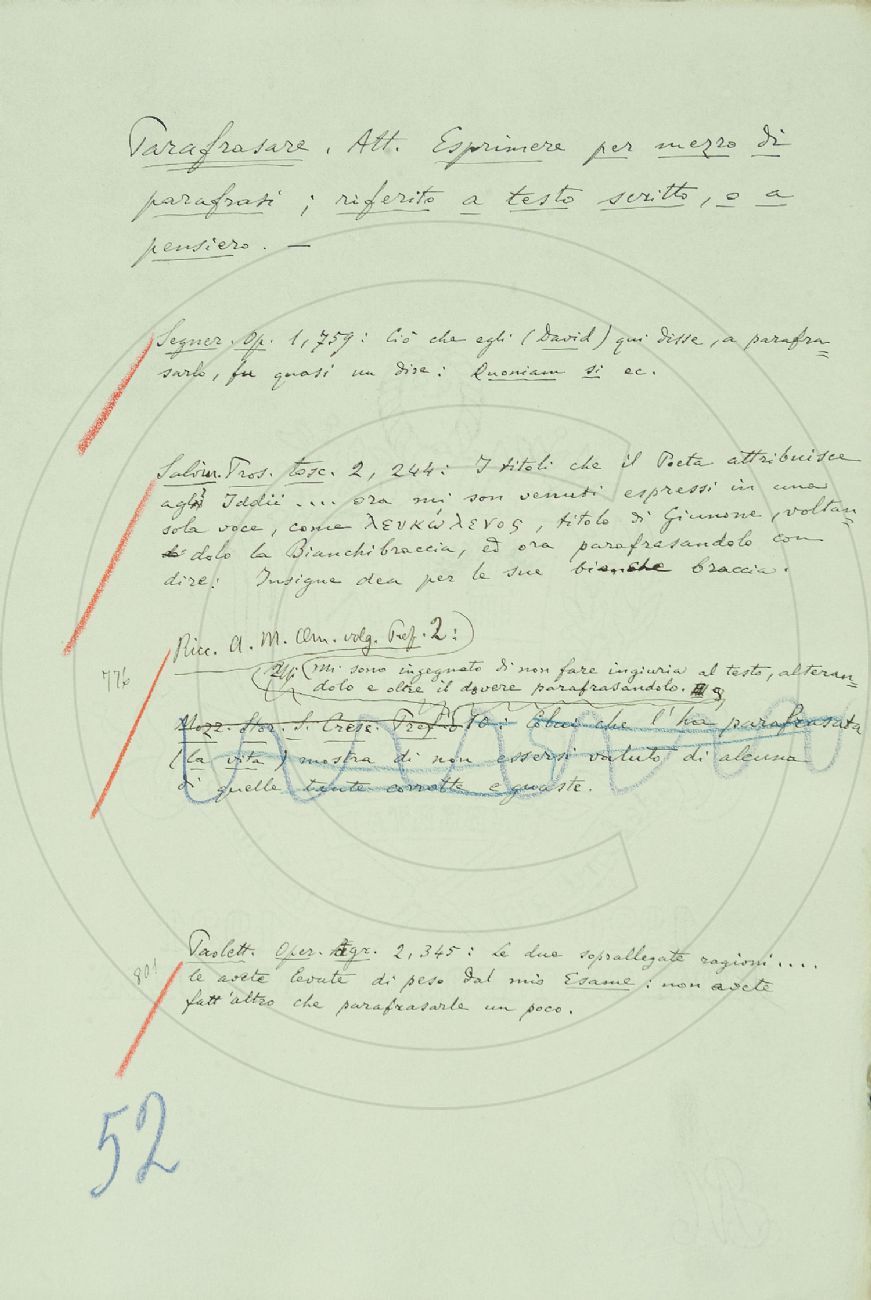 Parafrasare. Att. Esprimere per mezzo di
parafrasi; riferito a testo scritto, o a
pensiero. —
Segner. Op. 1, 759: Ciò che egli (David) qui disse, a parafra=
sarlo, fu quasi un dire: Quoniam si ec.
Salvin. Pros. tosc. 2, 244: I titoli che il Poeta attribuisce
agl' Iddii .... ora mi son venuti espressi in una
sola voce, come λευκώλενος, titolo di Giunone, voltan=
dolo la Bianchibraccia, ed ora parafrasandolo con
dire: Insigne dea per le sue bianche braccia.
Ricc. A. M. Om. volg. Pref. 2:
776
Mi sono ingegnato di non fare ingiuria al testo, alteran=
dolo e oltre il dovere parafrasandolo.
Mozz. Stor. S. Cresc. Pref. 10: Colui che l'ha parafrasata
(la vita) mostra di non essersi valuto di alcuna
di quelle tante corrotte e guaste.
Paolett. Oper. Agr. 2, 345: Le due soprallegate ragioni ....
801
le avete levate di peso dal mio Esame: non avete
fatt'altro che parafrasarle un poco.
52